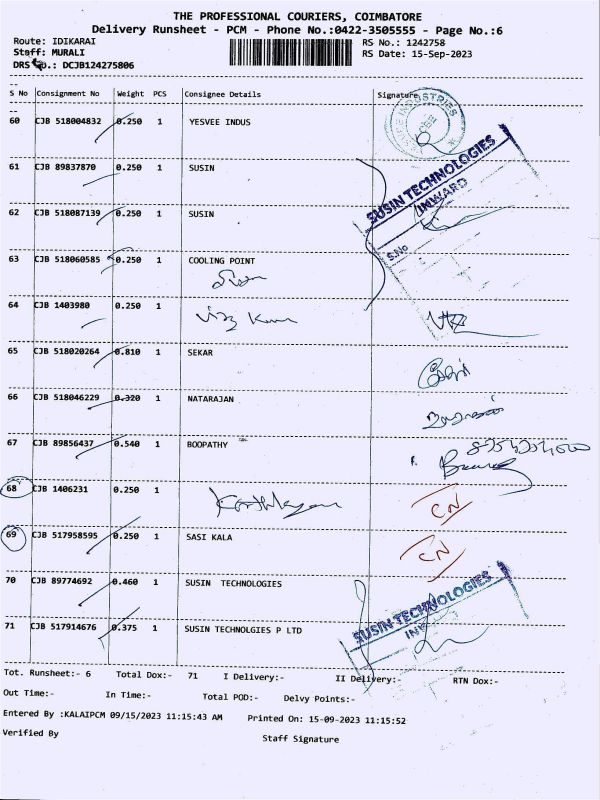 THE PROFESSIONAL COURIERS, COIMBATORE
Delivery Runsheet - PCM - Phone No.:0422-3505555 - Page No.:6
Route: IDIKARAI RS No.: 1242758
Staff: MURALI RS Date: 15-Sep-2023
DRS No.: DCJB124275806
S No Consignment No Weight PCS Consignee Details Signature
60 CJB 518004832 0.250 1 YESVEE INDUS
61 CJB 89837870 0.250 1 SUSIN
SUSIN TECHNOLOGIES
INWARD
62 CJB 518087139 0.250 1 SUSIN
S.No
63 CJB 518060585 0.250 1 COOLING POINT
64 CJB 1403980 0.250 1
65 CJB 518020264 0.810 1 SEKAR
66 CJB 518046229 0.320 1 NATARAJAN
67 CJB 89856437 0.540 1 BOOPATHY
68 CJB 1406231 0.250 1 CN
69 CJB 517958595 0.250 1 SASI KALA CN
70 CJB 89774692 0.460 1 SUSIN TECHNOLOGIES
SUSIN TECHNOLOGIES
71 CJB 517914676 0.375 1 SUSIN TECHNOLGIES P LTD
Tot. Runsheet:- 6 Total Dox:- 71 I Delivery:- II Delivery:- RTN Dox:-
Out Time:- In Time:- Total POD:- Delvy Points:-
Entered By :KALAIPCM 09/15/2023 11:15:43 AM Printed On: 15-09-2023 11:15:52
Verified By Staff Signature